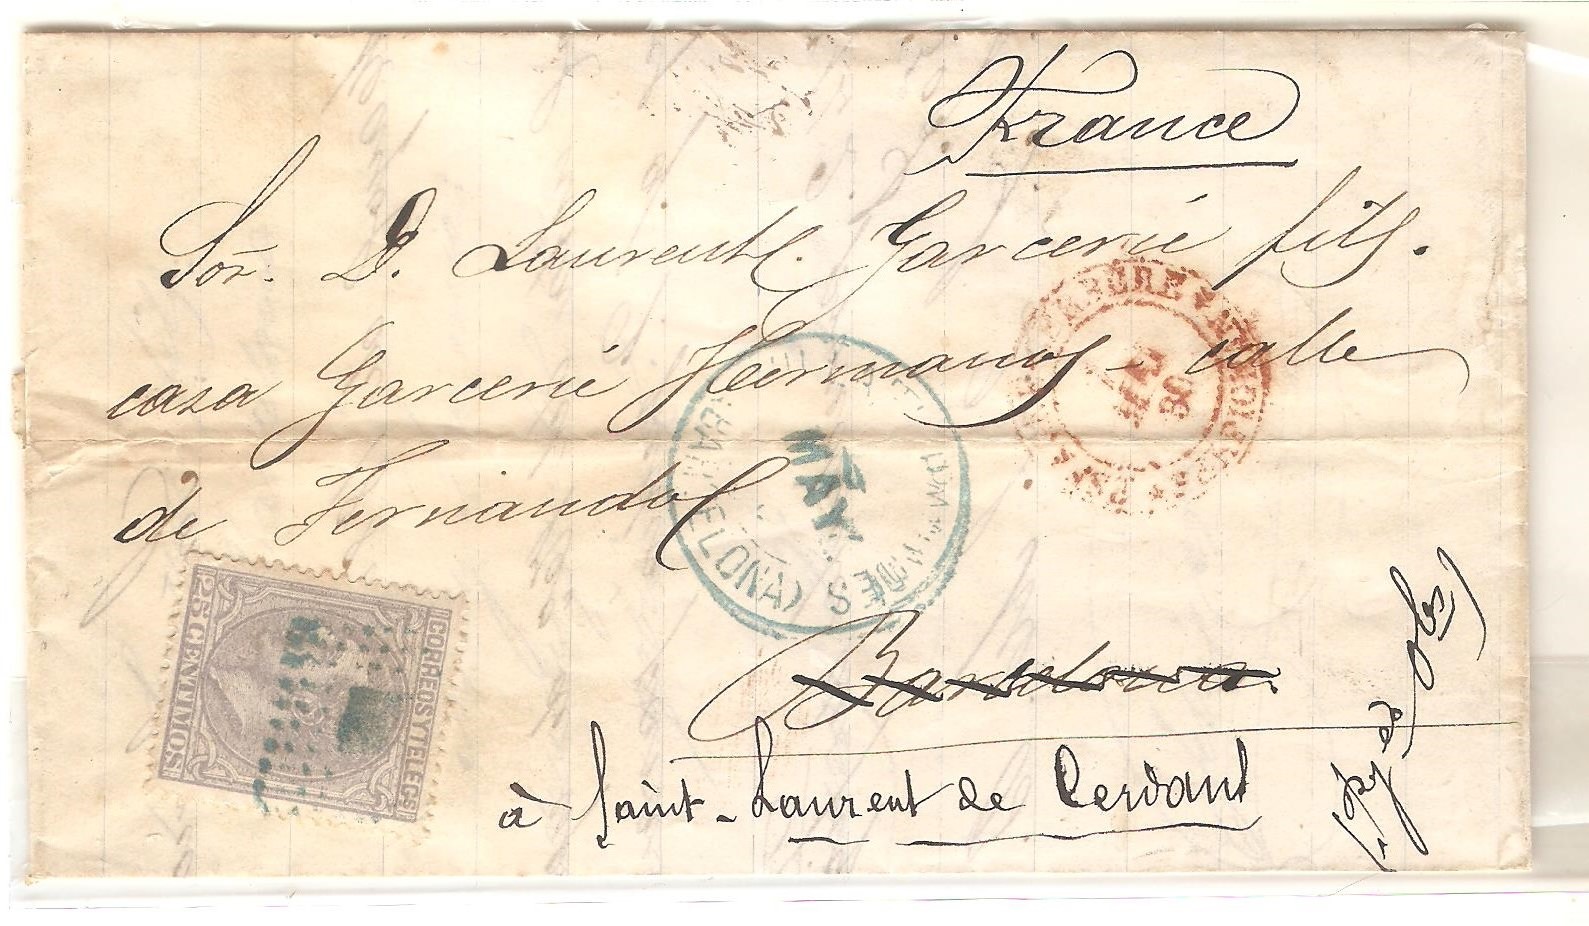 France
Sor. D. Laurent Garcerie fils.
casa Garcerie Hermanos - calle
de Fernando
MAY
(BARCELONA)
MAI
80
PERPIGNAN
CORREOS Y TELEGS
25 CENTIMOS
Barcelona
à Saint-Laurent de Cerdans